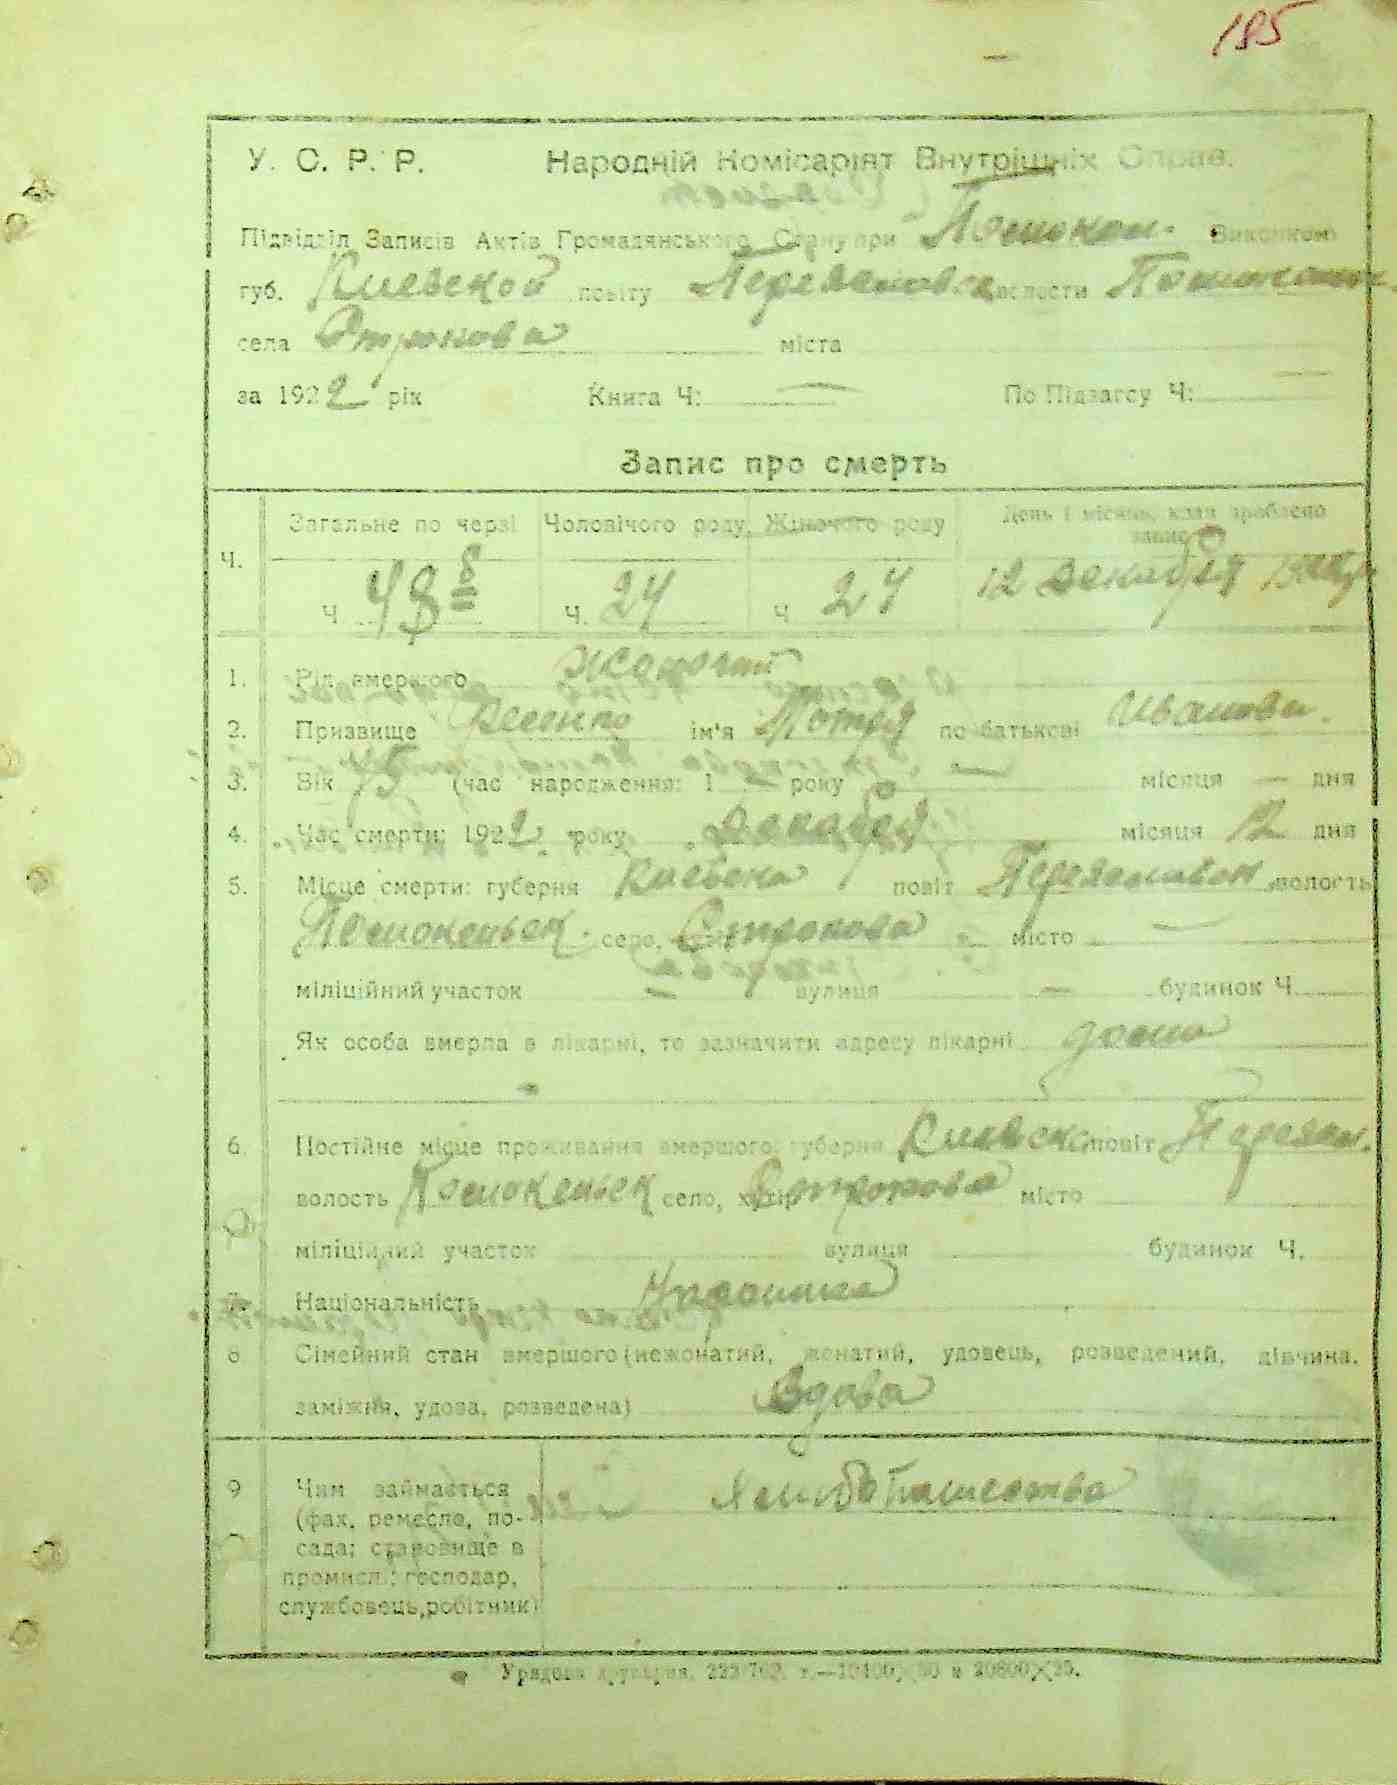 185
У. С. Р. Р. Народній Комісаріят Внутрішніх Справ.
Підвідділ Записів Актів Громадянського Стану при Виконкомі
губ. Киевской повіту волости
села Строкова міста
за 1922 рік Книга Ч: — По Підзагсу Ч: —
Запис про смерть
Загальне по черзі Чоловічого роду Жіночого роду День і місяць, коли зроблено
запис
Ч.
Ч 48 Ч. 24 Ч 24 12 декабря
1. Рід вмершого
2. Призвище ім'я Мотря по батькові Иванова.
3. Вік 75 (час народження: 1 — року — місяця — дня
4. Час смерти: 1922 року Декабря місяця 12 дня
5. Місце смерти: губерня Киевска повіт волость
село, хутір Строкова місто —
міліційний участок — вулиця — будинок Ч.
Як особа вмерла в лікарні, то зазначити адресу лікарні дома
6. Постійне місце проживання вмершого: губерня Киевск повіт Переяс.
волость село, хутір Строкова місто
міліційний участок вулиця будинок Ч.
7. Національність Украинка
8 Сімейний стан вмершого (нежонатий, женатий, удовець, розведений, дівчина,
заміжня, удова, розведена) Вдова
9 Чим займається Хлибопашество
(фах, ремесло, по-
сада; становище в
промисл.: господар,
службовець, робітник)
Урядова друкарня.